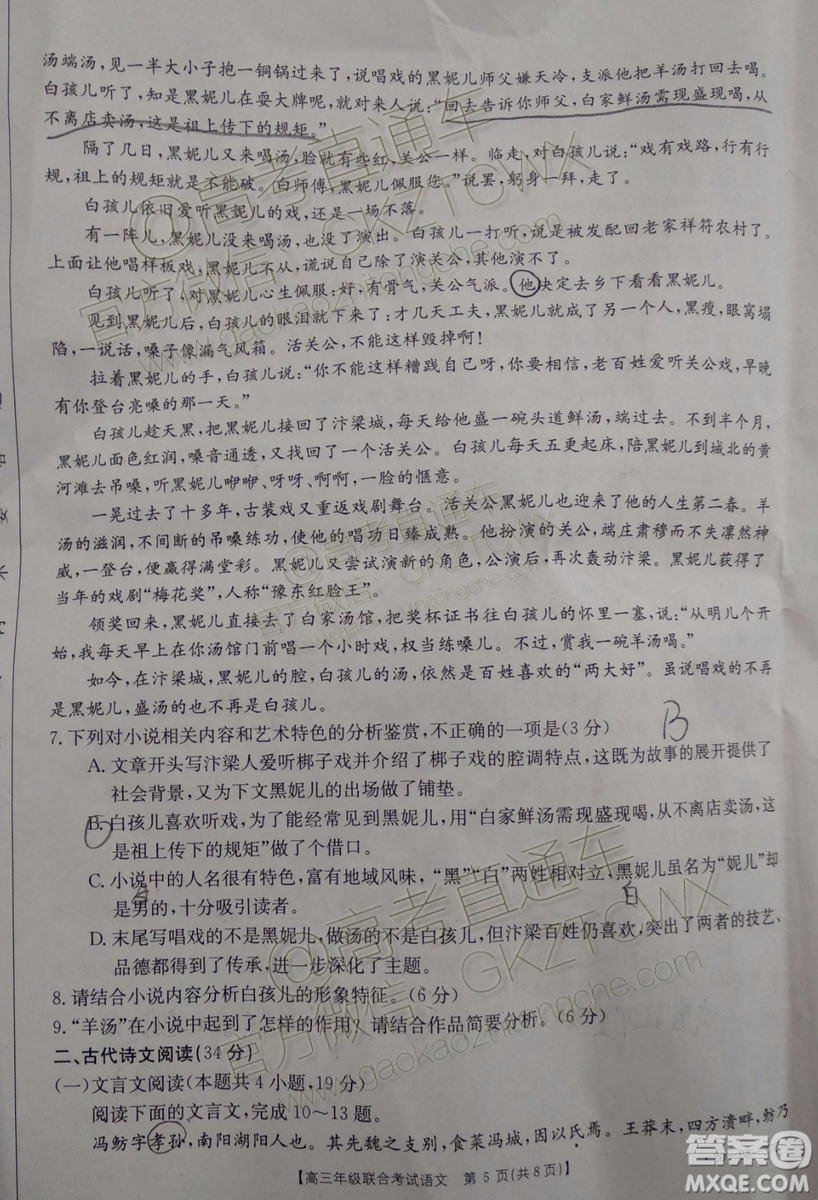 汤端汤，见一半大小子抱一铜锅过来了，说唱戏的黑妮儿师父嫌天冷，支派他将羊汤打回去喝。
白孩儿听了，知是黑妮儿在耍大牌呢，就对来人说：“回去告诉你师父，白家鲜汤需现盛现喝，从
不离店卖汤，这是祖上传下的规矩。”
隔了几日，黑妮儿又来喝汤，脸就有些红，关公一样。临走，对白孩儿说：“戏有戏路，行有行
规，祖上的规矩就是不能破。白师傅，黑妮儿佩服您。”说罢，躬身一拜，走了。
白孩儿依旧爱听黑妮儿的戏，还是一场不落。
有一阵儿，黑妮儿没来喝汤，也没了演出。白孩儿一打听，说是被发配回老家祥符农村了。
上面让他唱样板戏，黑妮儿不从，谎说自己除了演关公，其他演不了。
白孩儿听了，对黑妮儿心生佩服：好，有骨气，关公气派。他决定去乡下看看黑妮儿。
见到黑妮儿后，白孩儿的眼泪就下来了：才几天工夫，黑脸的大个子黑妮儿，黑瘦，眼窝塌
陷，一说话，嗓子像漏气风箱。活关公，不能这样毁掉啊！
拉着黑妮儿的手，白孩儿说：“你不能这样糟践自己啊，老百姓爱听关公戏，早晚
有你登台亮嗓的那一天。”
白孩儿趁天黑，把黑妮儿接回了汴梁城，每天给他盛一碗头道鲜汤，端过去。不到半个月，
黑妮儿面色红润，嗓音通透，又找回了一个活关公。白孩儿每天五更起床，陪黑妮儿到城北的黄
河滩去吊嗓，听黑妮儿咿咿、呀呀、啊啊，一脸的惬意。
一晃过去了十多年，古装戏又重返戏剧舞台。活关公黑妮儿也迎来了他的人生第二春。羊
汤的滋润，不间断的吊嗓练功，使他的唱功日臻成熟。他扮演的关公，端庄肃穆而不失凛然神
威，一登台，便赢得满堂彩。黑妮儿又尝试演新的角色，公演后，再次轰动汴梁。黑妮儿获得了
当年的戏剧“梅花奖”，人称“豫东红脸王”。
领奖回来，黑妮儿直接去了白家汤馆，把奖杯证书往白孩儿的怀里一塞，说：“从明儿个开
始，我每天早上在你汤馆门前唱一个小时戏，权当练嗓儿。不过，赏我一碗羊汤喝。”
如今，在汴梁城，黑妮儿的腔，白孩儿的汤，依然是百姓喜欢的“两大好”。虽说唱戏的不再
是黑妮儿，盛汤的也不再是白孩儿。
7. 下列对小说相关内容和艺术特色的分析鉴赏，不正确的一项是(3 分)
B
A. 文章开头写汴梁人爱听梆子戏并介绍了梆子戏的腔调特点，这既为故事的展开提供了
社会背景，又为下文黑妮儿的出场做了铺垫。
B. 白孩儿喜欢听戏，为了能经常见到黑妮儿，用“白家鲜汤需现盛现喝，从不离店卖汤，这
是祖上传下的规矩”做了个借口。
C. 小说中的人名很有特色，富有地域风味，“黑”“白”两姓相对立，黑妮儿虽名为“妮儿”却
是男的，十分吸引读者。
D. 末尾写唱戏的不是黑妮儿，做汤的不是白孩儿，但汴梁百姓仍喜欢，突出了两者的技艺、
品德都得到了传承，进一步深化了主题。
8. 请结合小说内容分析白孩儿的形象特征。(6 分)
9. “羊汤”在小说中起到了怎样的作用？请结合作品简要分析。(6 分)
二、古代诗文阅读(34 分)
(一)文言文阅读(本题共 4 小题，19 分)
阅读下面的文言文，完成 10～13 题。
冯鲂字孝孙，南阳湖阳人也。其先魏之支别，食菜冯城，因以氏焉。王莽末，四方溃畔，鲂乃
【高三年级联合考试语文 第 5 页(共 8 页)】
答案圈
MXQE.COM